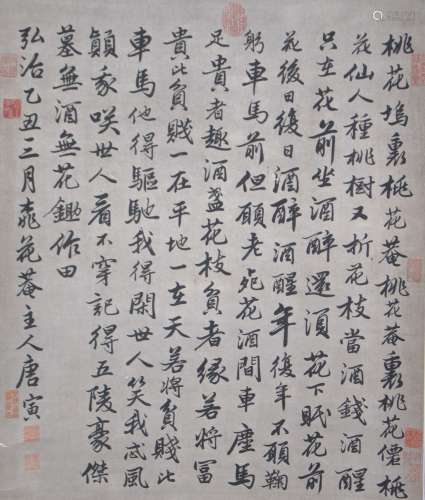 桃花塢裏桃花菴桃花菴裏桃花僊桃
花仙人種桃樹又折花枝當酒錢酒醒
只在花前坐酒醉還須花下眠花前
花後日復日酒醉酒醒年復年不願鞠
躬車馬前但願老死花酒間車塵馬
足貴者趣酒盞花枝貧者緣若將富
貴比貧賤一在平地一在天若將貧賤比
車馬他得驅馳我得閑世人笑我忒風
顛我咲世人看不穿記得五陵豪傑
墓無酒無花鋤作田
弘治乙丑三月桃花菴主人唐寅